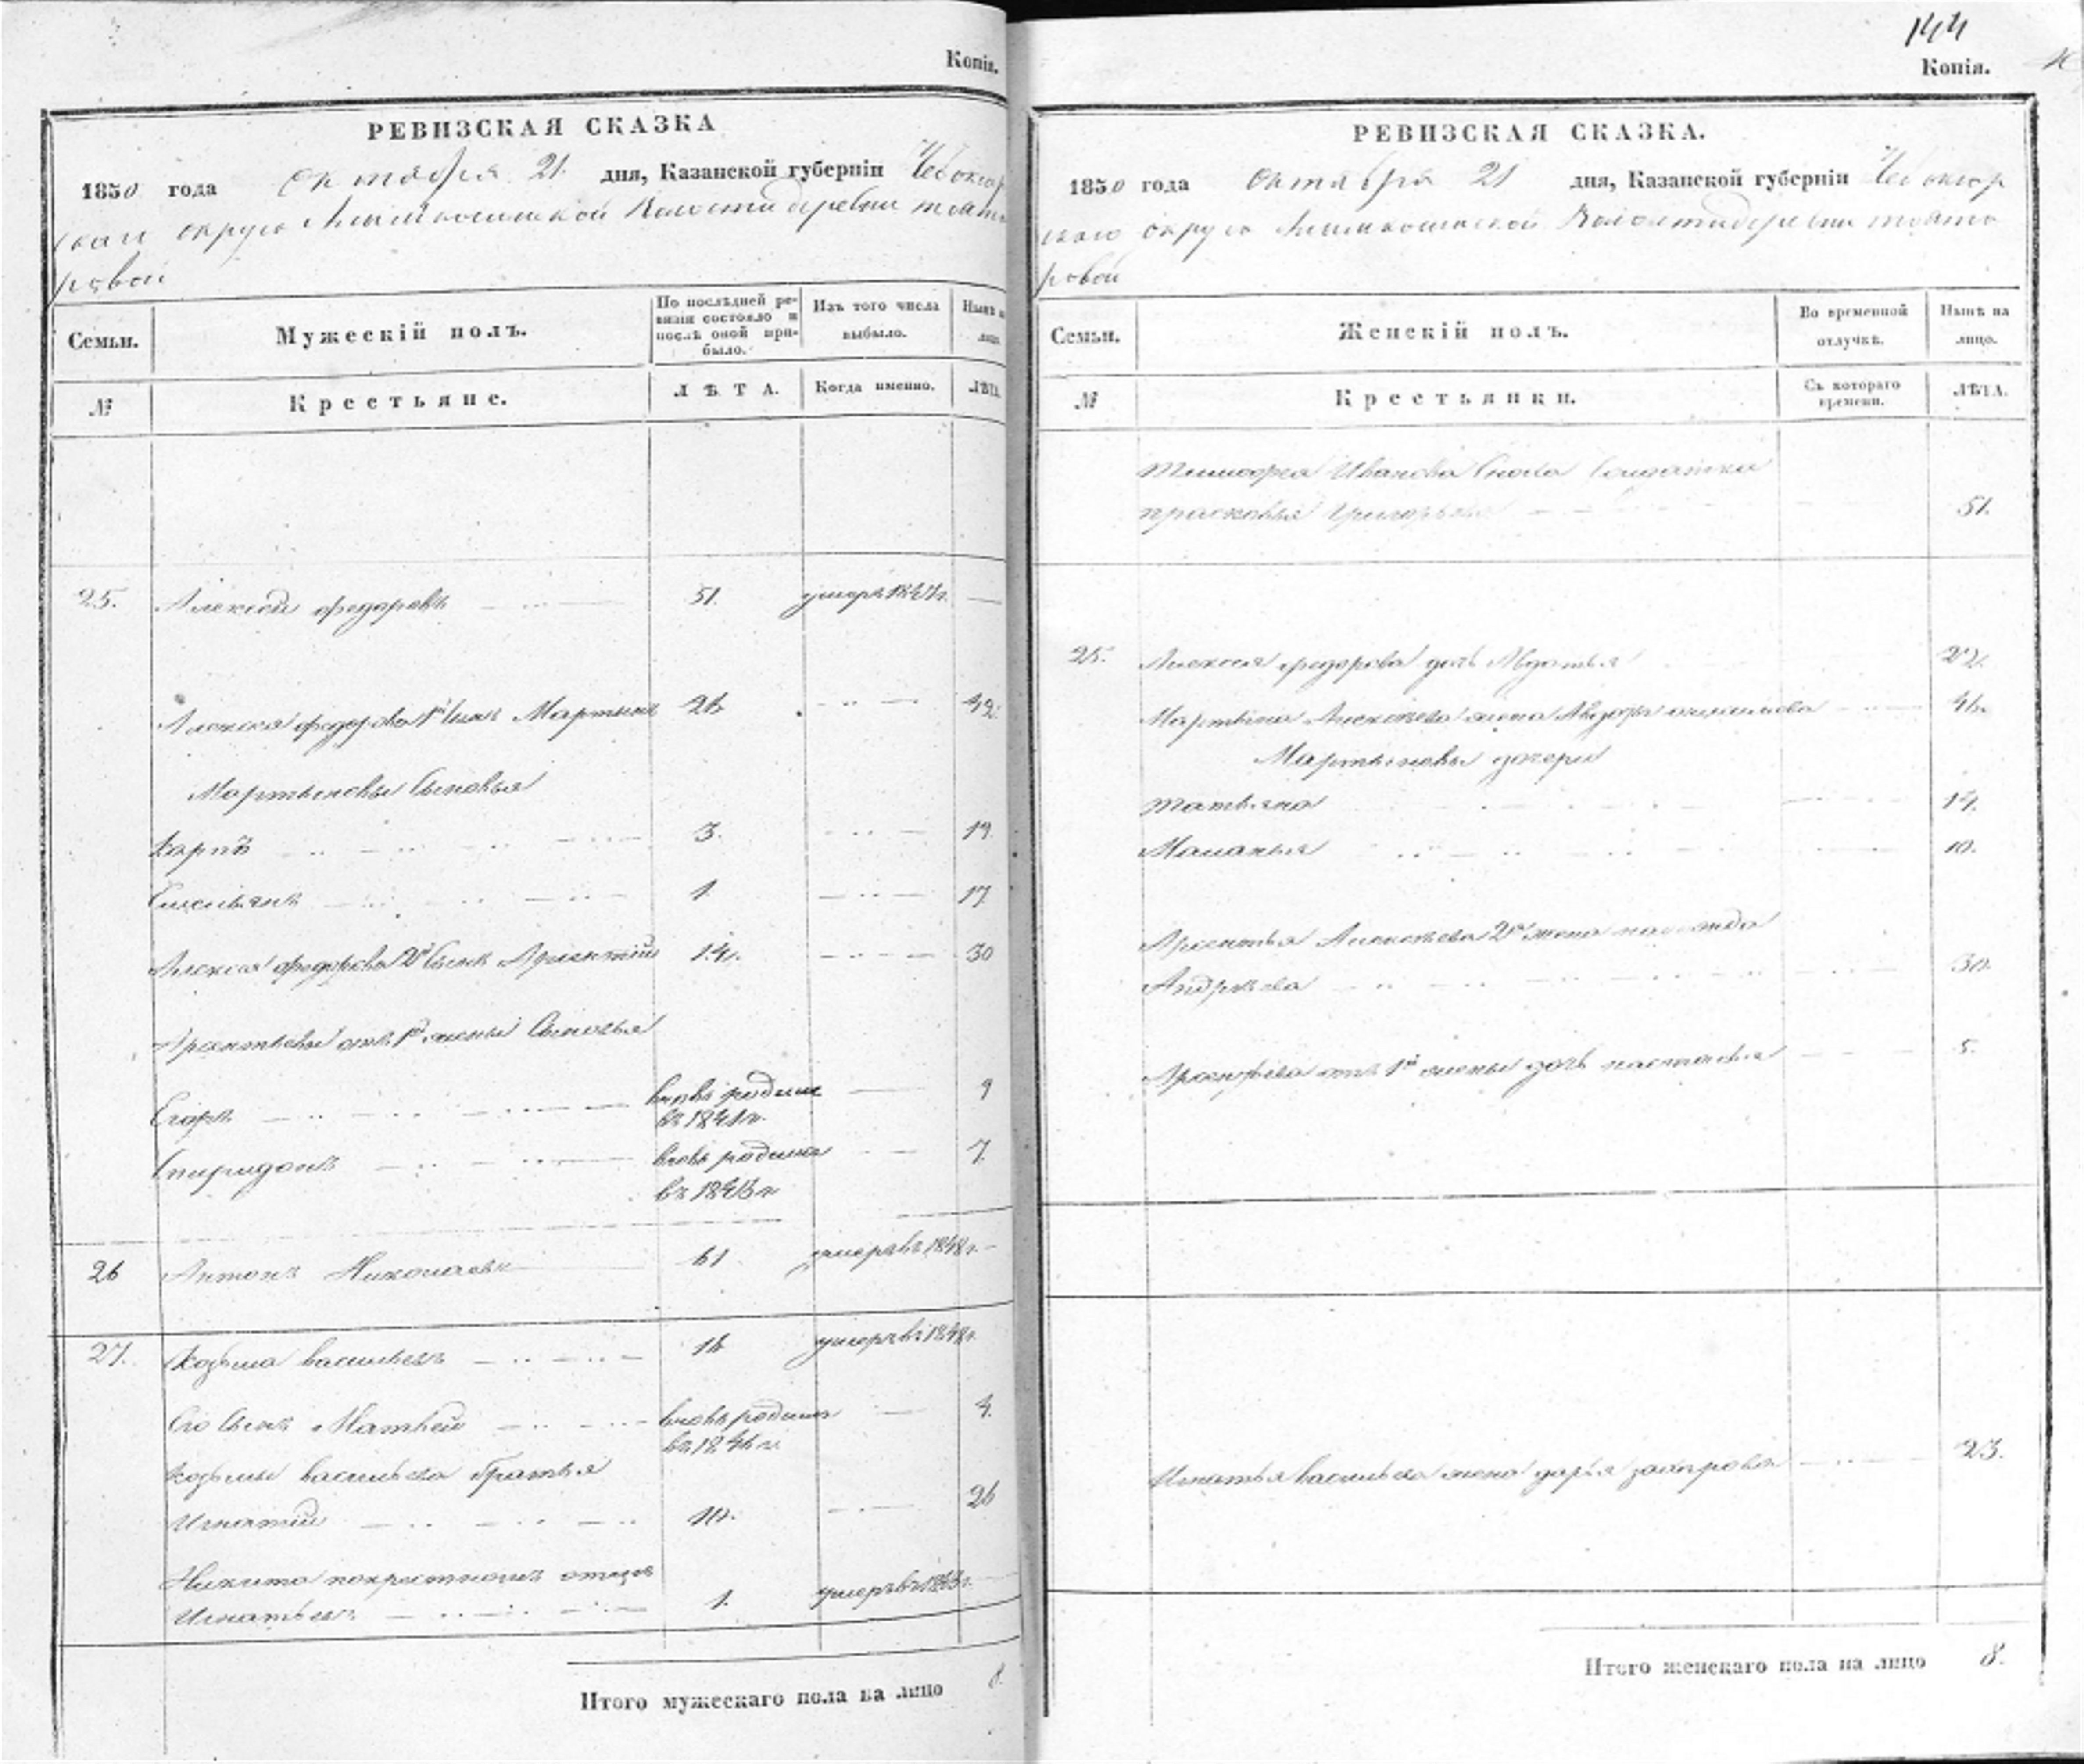 Копія.
РЕВИЗСКАЯ СКАЗКА
1850 года октября 21. дня, Казанской губерніи Чебоксар
скаго округа Волости деревни
ровой
Семьи. Мужескій полъ. По послѣдней ре- Изъ того числа Нынѣ на
визіи состояло и выбыло. лицо.
послѣ оной при-
было.
№ Крестьяне. ЛѢТА. Когда именно. ЛѢТА.
25. Алексей федоровъ 51. умеръ 1847г.
Алексея федорова 1й Сынъ Мартынъ 26 42.
Мартыновы Сыновья
Карпъ 3. 19.
Емельянъ 1. 17
Алексея федорова 2й Сынъ Арсентій 14. 30
Арсентьевы отъ 1й жены Сыновья
Егоръ вновь родился 9
въ 1841г.
Спиридонъ вновь родился 7
въ 1843г
26 Антонъ Николаевъ 61 умеръ въ 1848г.
27. Козьма васильевъ 16 умеръ въ 1848г.
Его Сынъ Матвей вновь родился 4.
въ 1846г.
Козьмы васильева братья
Игнатий 10. 26
Никита покрестному отцу
Игнатьевъ 1. умеръ въ
Итого мужескаго пола на лицо 8.
144
Копія.
РЕВИЗСКАЯ СКАЗКА.
1850 года Октября 21 дня, Казанской губерніи Чебоксар
скаго округа Волости деревни
ровой
Семьи. Женскій полъ. Во временной Нынѣ на
отлучкѣ. лицо.
№ Крестьянки. Съ котораго ЛѢТА.
времени.
Тимофея Иванова Сноха Солдатка
прасковья Григорьева 51.
25. Алексея федорова дочь Авдотья 22.
Мартына Алексѣева жена 46.
Мартыновы дочери
Татьяна 14.
Маланья 10.
Арсентья Алексѣева 2я жена
Андрѣева 30.
Арсентьева отъ 1й жены дочь настасья 5.
Игнатья васильева жена дарья захарова 23.
Итого женскаго пола на лицо 8.